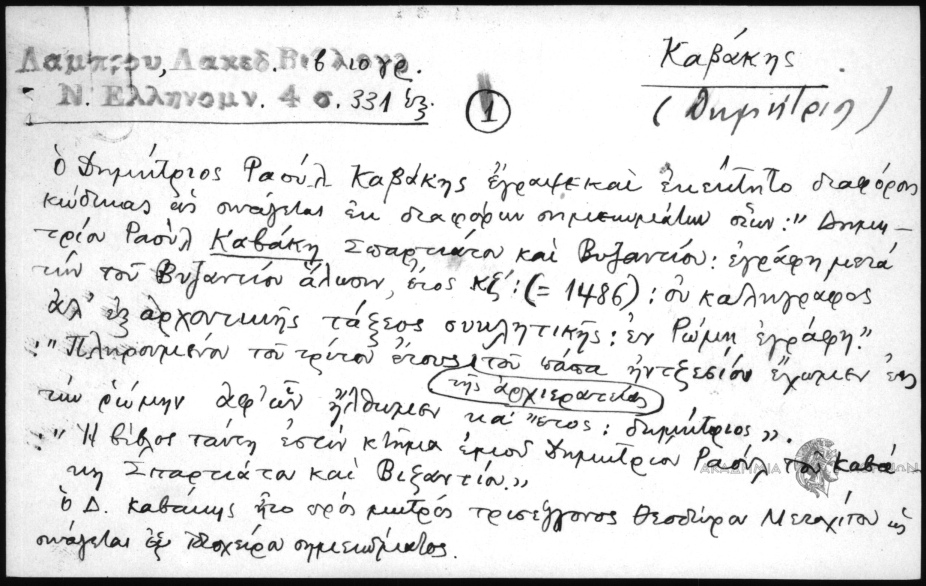 Λαμπρου, Λακεδ. Βιβλιογρ.
Ν. Ελληνομν. 4 σ. 331 ἑξ.
1
Καβάκης
(Δημήτριος)
ὁ Δημήτριος Ραούλ Καβάκης ἔγραψε καὶ ἐκέκτητο διαφόρους
κώδικας ὡς συνάγεται ἐκ διαφόρων σημειωμάτων οἷον: " Δημη-
τρίου Ραοὺλ Καβάκη Σπαρτιάτου καὶ Βυζαντίου: ἐγράφη μετὰ
τὴν τοῦ Βυζαντίου ἅλωσιν, ἔτος κξ´: (= 1486): οὐ καλλιγράφος
ἀλ' ἐξ ἀρχοντικῆς τάξεος συκλητικῆς: ἐν Ρώμη ἐγράφη."
: "Πληρουμένου τοῦ τρίτου ἔτους τῆς ἀρχιερατείας τοῦ πάπα ἠντζεσίου ἔχωμεν εἰς
τὴν ῥώμην ἀφ' ὧν ἤλθωμεν κα´ ἔτος: δημήτριος».
: " Ἡ βίβλος ταύτη ἐστὶν κτῆμα ἐμοῦ Δημητρίου Ραοὺλ τοῦ Καβά
κη Σπαρτιάτου καὶ Βιζαντίου.»
ὁ Δ. Καβάκης ἦτο πρὸς μητρὸς τρισέγγονος Θεοδώρου Μετοχίτου ὡς
συνάγεται ἐξ ἰδιοχείρου σημειώματος.
ΑΚΑΔΗΜΙΑ ΑΘΗΝΩΝ